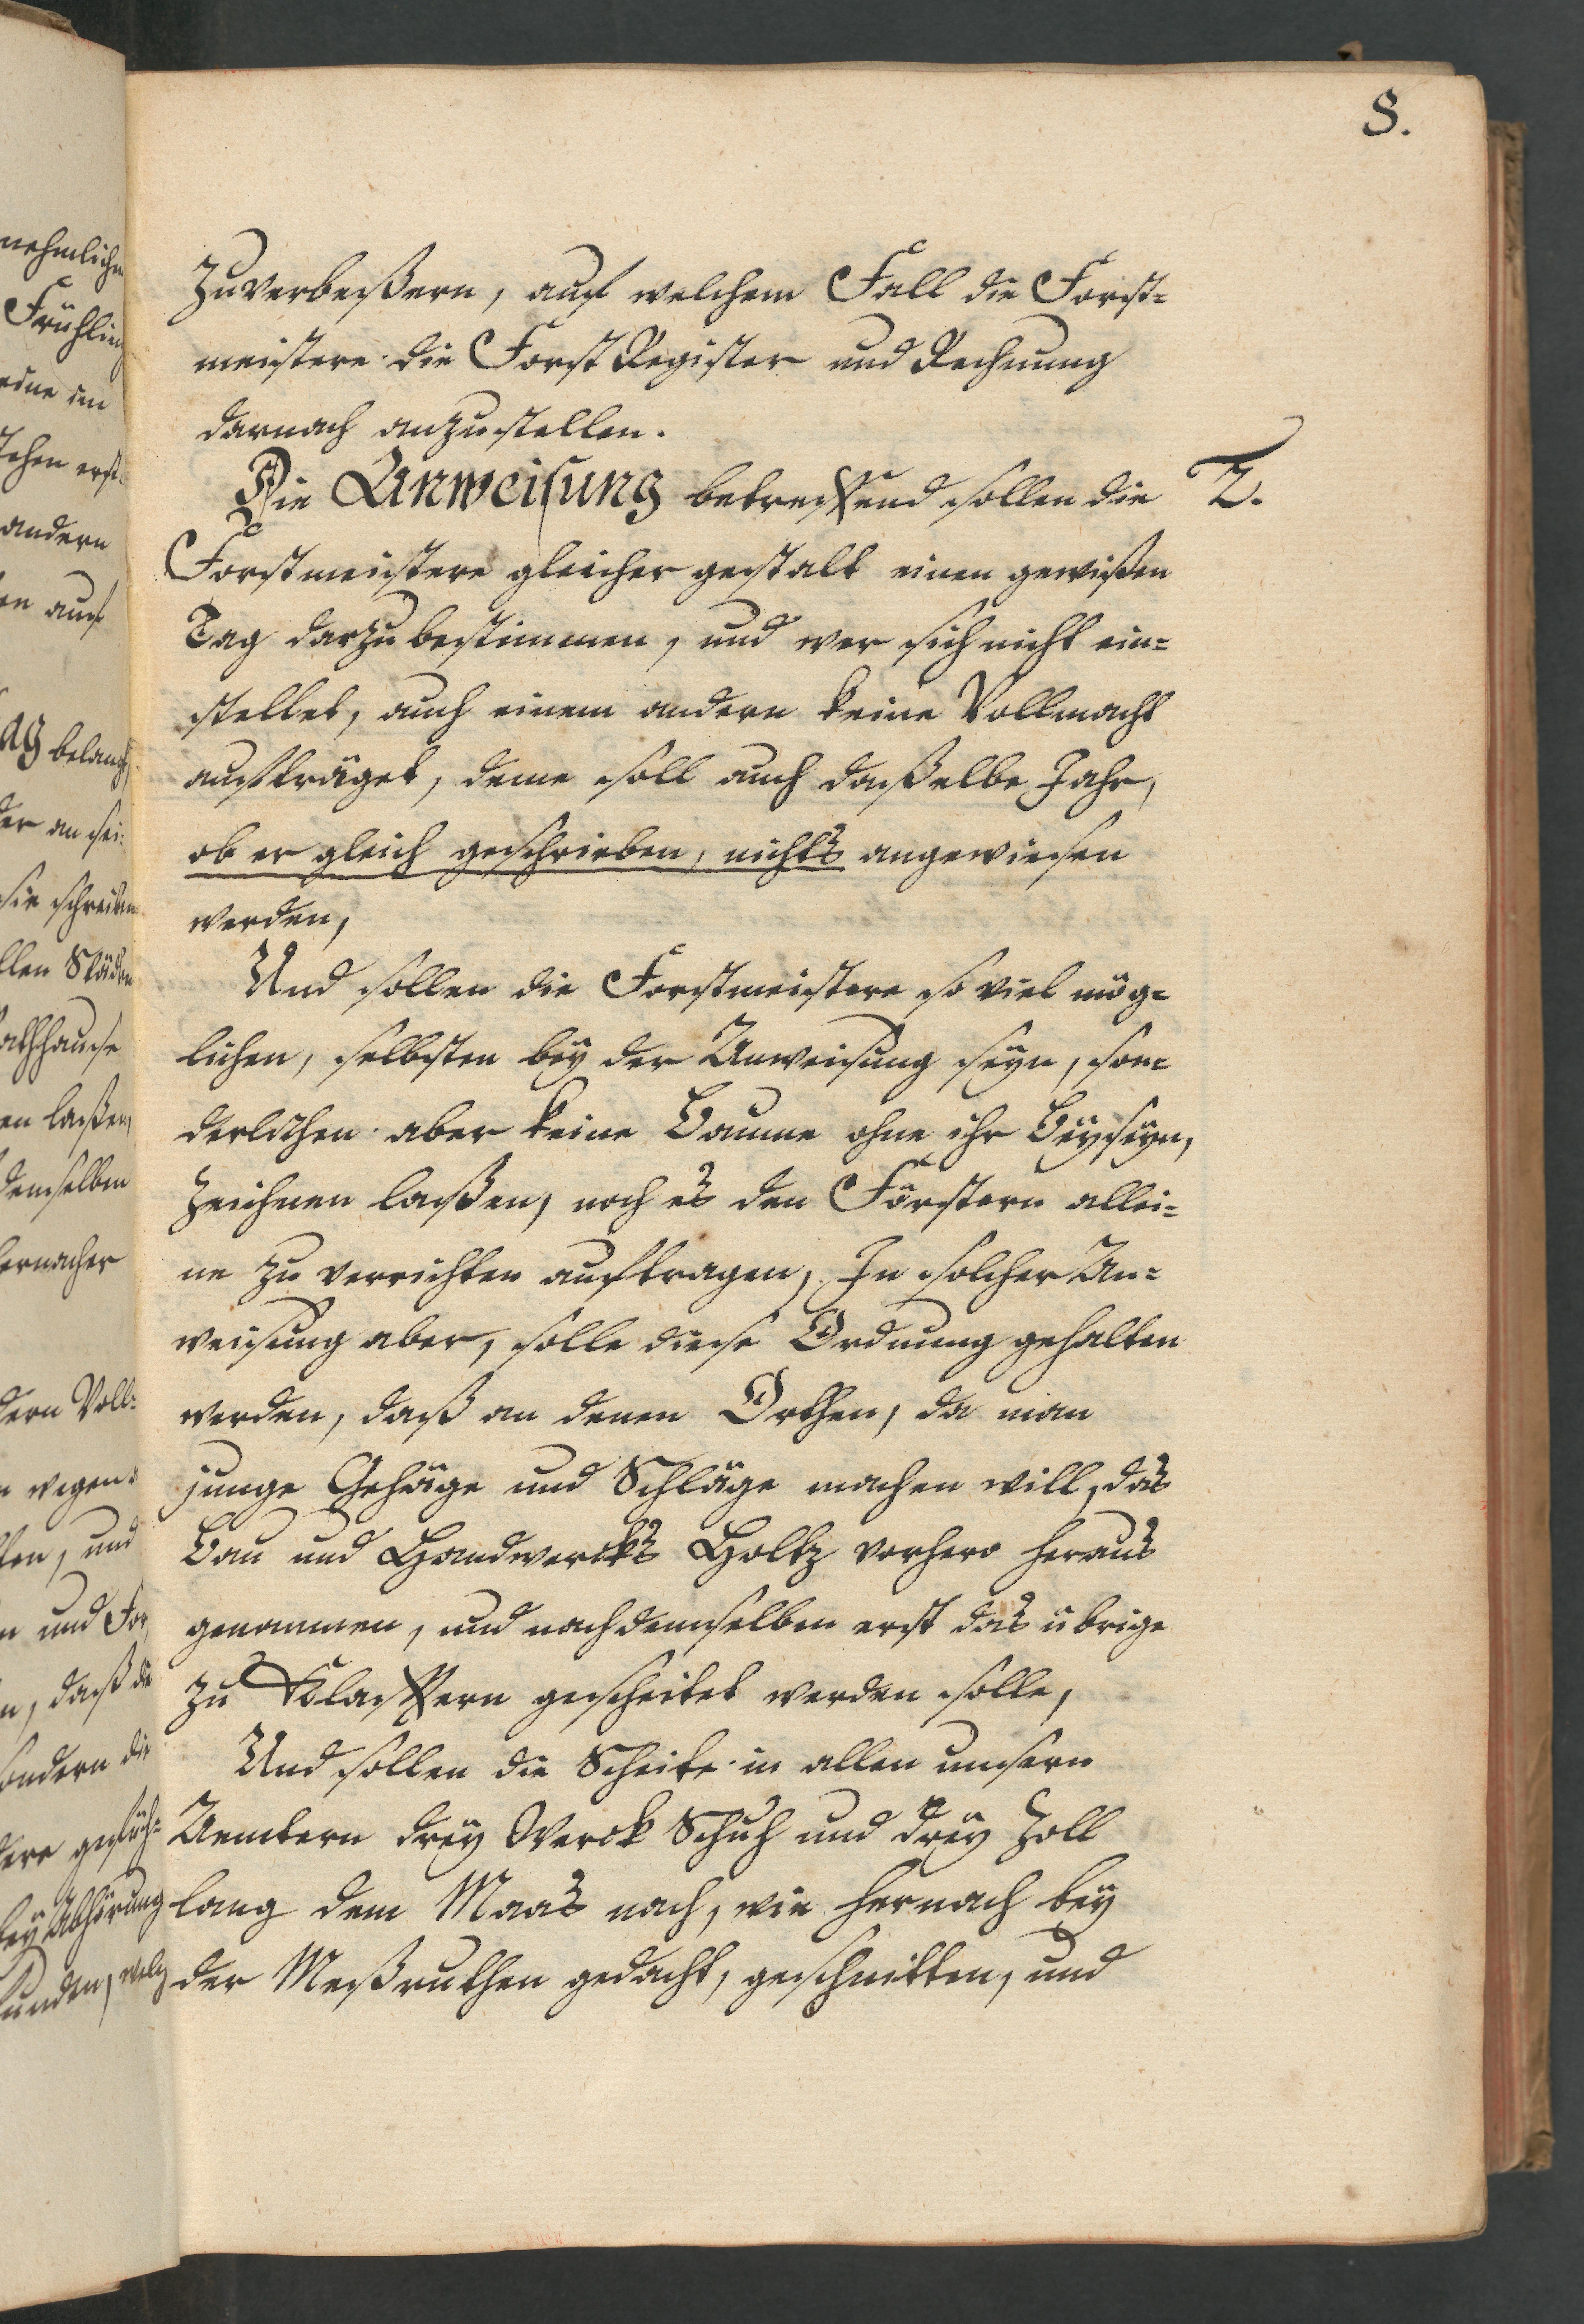 8.
zuverbeßern, auf welchem Fall die Forst=
meistere die Forst Register und Rechnung
darnach anzustellen.
Die Anweisung betreffend sollen die 2.
Forstmeistere gleicher gestalt einen gewißen
Tag darzu bestimmen, und wer sich nicht ein=
stellet, auch einem andern keine Vollmacht
aufträget, deme soll auch daßelbe Jahr,
ob er gleich geschrieben, nichts angewiesen
werden,
Und sollen die Forstmeistere so viel mög=
lichen, selbsten bey der Anweisung seyn, son=
derlichen aber keine Baume ohne ihr Beyseyn,
zeichnen laßen, noch es den Förstern allei=
ne zu verrichten auftragen, In solcher An=
weisung aber, solle diese Ordnung gehalten
werden, daß an denen Orthen, da man
junge Gehäge und Schläge machen will, das
Bau und Handwercks Holtz vorhero heraus
genommen, und nach demselben erst das übrige
zu Klafftern gescheitet werden solle,
Und sollen die Scheite in allen unsern
Aemtern drey Werck Schuh und drey Zoll
lang dem Maas nach, wie hernach bey
der Meßruthen gedacht, geschnitten, und
nehmlichen
Frühling
andern
en auf
AG belangt
der an sei=
sie schreiben
llen Städen
athhause
en laßen,
demselben
hernacher
dern Voll=
n wegen
ten, und
n und For
n, daß die
sondern die